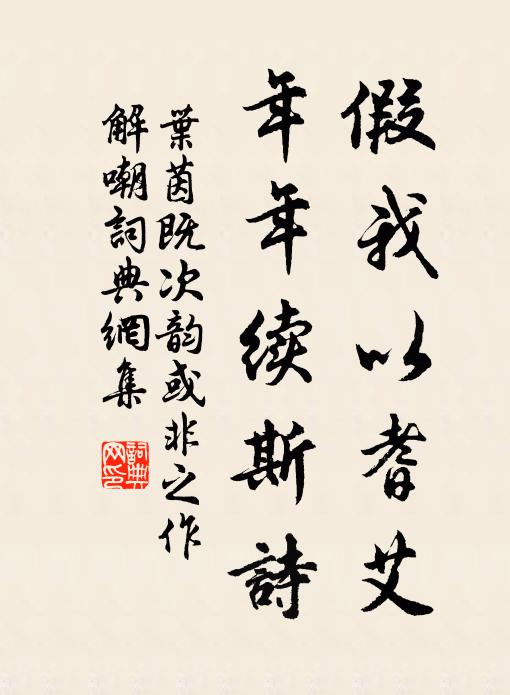 假我以耆艾
年年续斯詩
葉茵既次韵或非之作
解嘲詞典網集
詞典网印